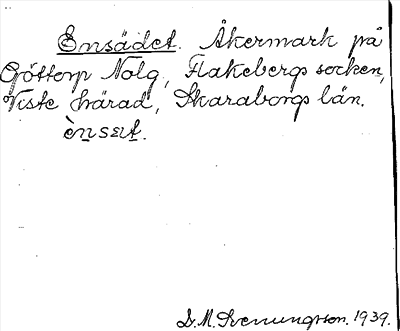 Ensädet. Åkermark på
Göttorp Nolg, Flakebergs socken,
Viste härad, Skaraborgs län.
ènsæt.
D. M. Svenungsson. 1939.